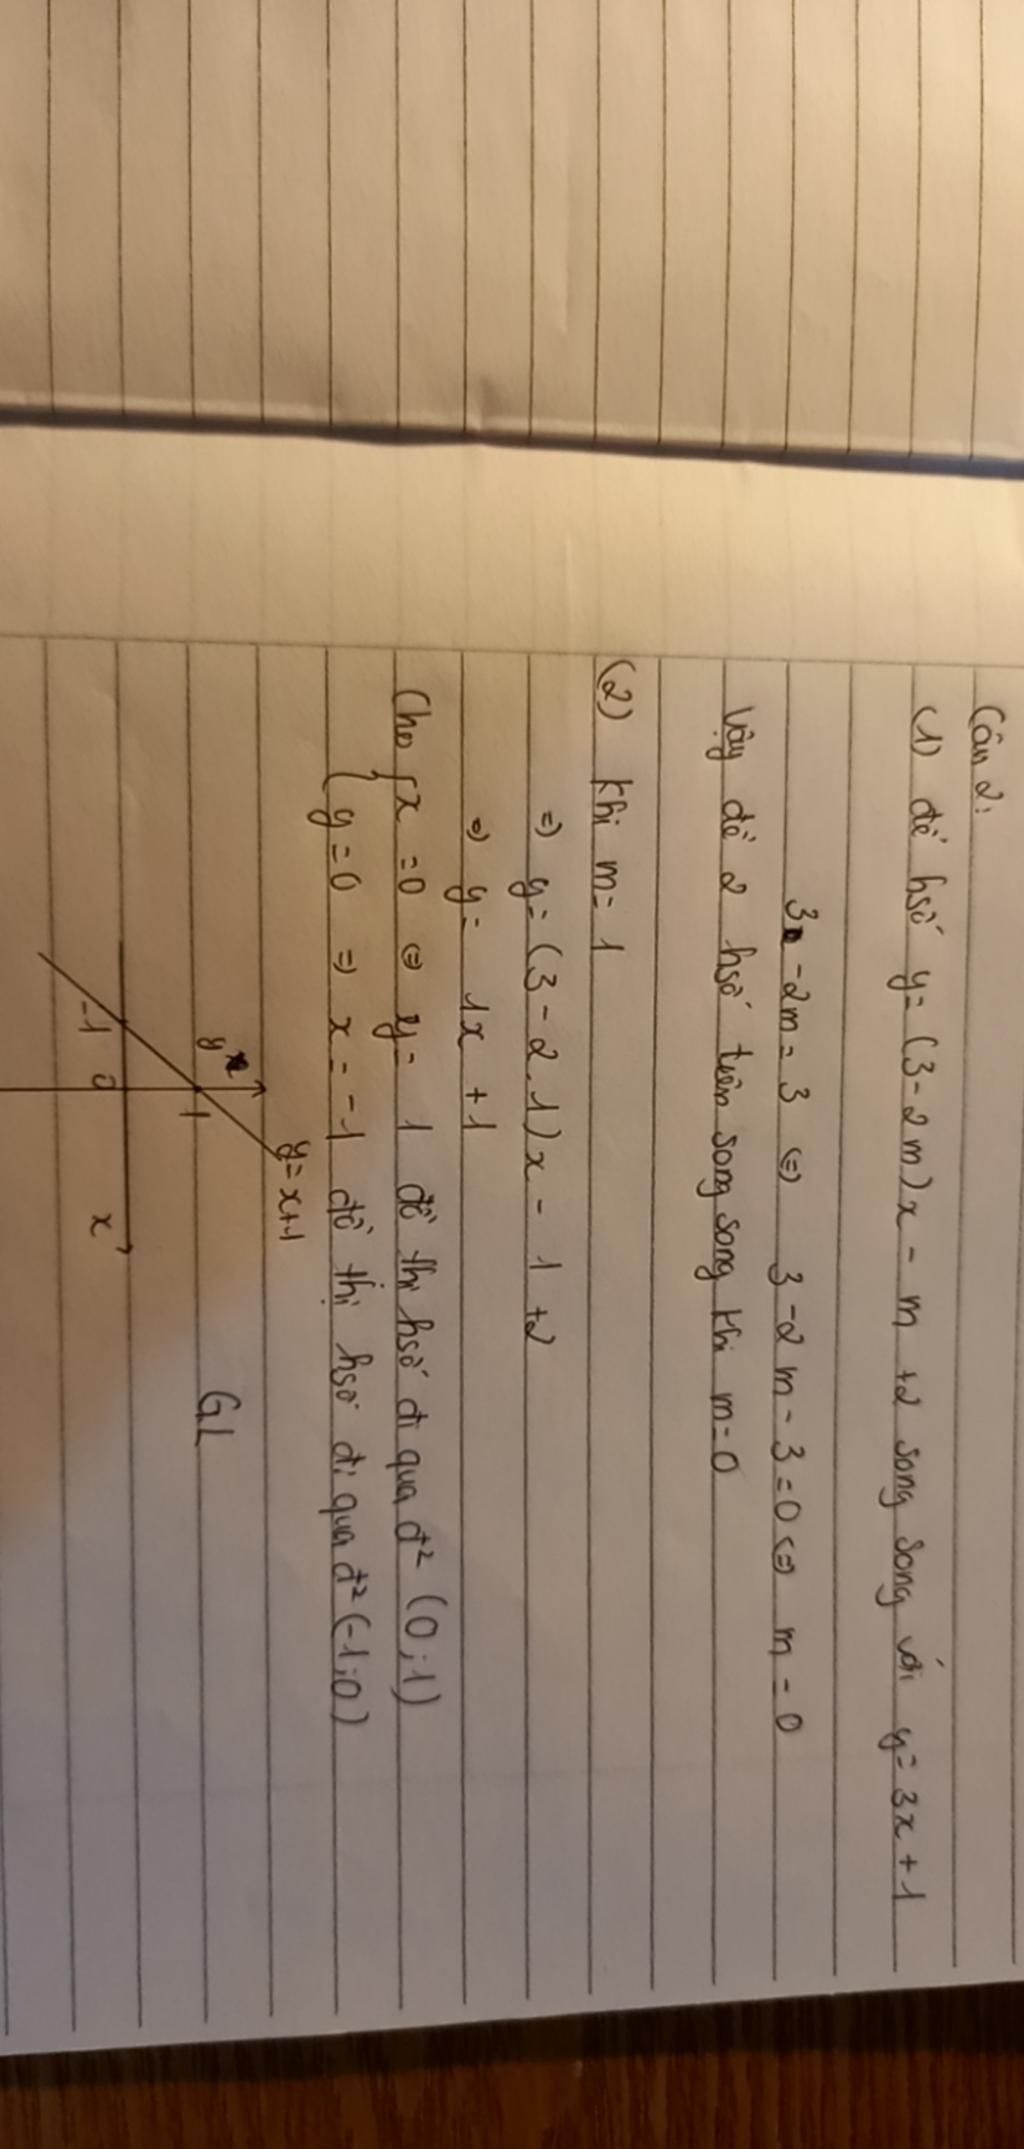 Câu 2:
(1) để hsố y = (3 - 2m)x - m +2 song song với y = 3x + 1
3 - 2m = 3 ⇔ 3 - 2m - 3 = 0 ⇔ m = 0
Vậy để 2 hsố trên song song khi m = 0
(2) Khi m = 1
⇒ y = (3 - 2.1)x - 1 +2
⇒ y = 1x + 1
Cho { x = 0 ⇔ y = 1 đồ thị hsố đi qua đ² (0;1)
y = 0 ⇒ x = -1 đồ thị hsố đi qua đ² (-1;0)
y = x+1
y
1
GL
-1 0 x